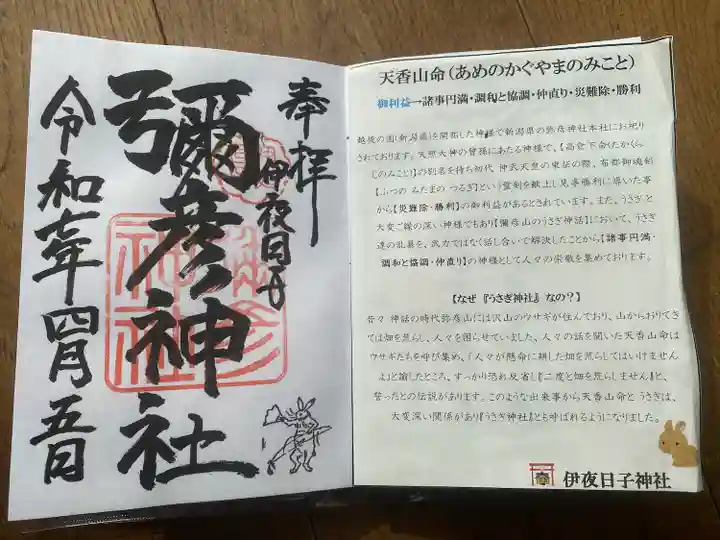 奉拝
伊夜日子
彌彦神社
令和七年四月五日
天香山命(あめのかぐやまのみこと)
御利益→諸事円満・調和と協調・仲直り・災難除・勝利
越後の国(新潟県)を開拓した神様で新潟県の弥彦神社本社にお祀り
されております。天照大神の曾孫にあたる神様で、【高倉下命(たかくら
じのみこと)】の別名を持ち初代 神武天皇の東征の際、布都御魂剣
【ふつの みたまの つるぎ】という霊剣を献上し見事勝利に導いた事
から【災難除・勝利】の御利益があるとされています。また、うさぎと
大変ご縁の深い神様でもあり【彌彦山のうさぎ神話】において、うさぎ
達の乱暴を、武力ではなく話し合いで解決したことから【諸事円満・
調和と協調・仲直り】の神様として人々の崇敬を集めております。
【なぜ『うさぎ神社』なの?】
昔々 神話の時代弥彦山には沢山のウサギが住んでおり、山からおりてき
ては畑を荒らし、人々を困らせていました。人々の話を聞いた天香山命は
ウサギたちを呼び集め、「人々が懸命に耕した畑を荒らしてはいけません
よ」と諭したところ、すっかり恐れ反省し『二度と畑を荒らしません』と、
誓ったとの伝説があります。このような出来事から天香山命と うさぎは、
大変深い関係があり『うさぎ神社』とも呼ばれるようになりました。
伊夜日子神社